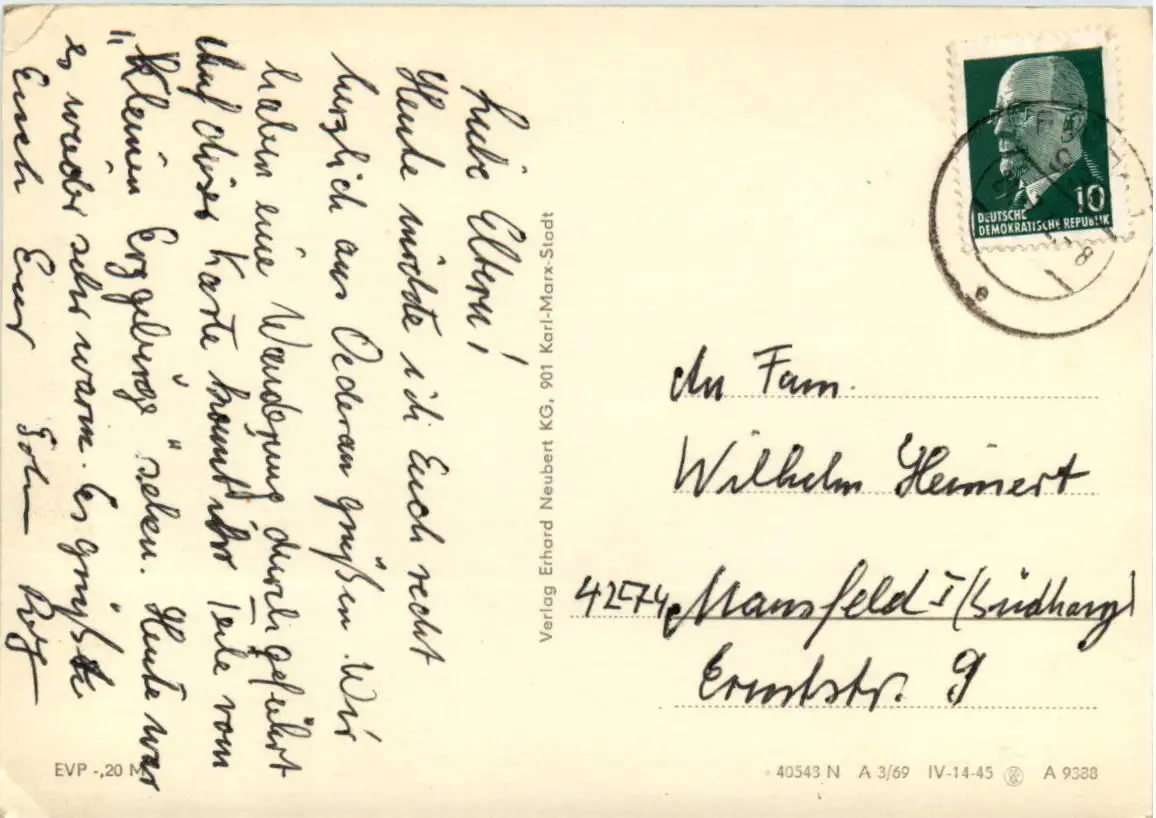 Liebe Eltern!
Heute möchte ich Euch recht
herzlich aus Oederan grüßen. Wir
haben eine Wanderung durchgeführt
Auf dieser Karte könnt ihr Teile vom
"Kleinen Erzgebirge" sehen. Heute war
es wieder sehr warm. Es grüßt
Euch Euer Sohn
Verlag Erhard Neubert KG, 901 Karl-Marx-Stadt
10
DEUTSCHE
DEMOKRATISCHE REPUBLIK
An Fam.
Wilhelm Heinert
Mansfeld I (Südharz)
Ernststr. 9
EVP -,20 M
40543 N A 3/69 IV-14-45 A 9388